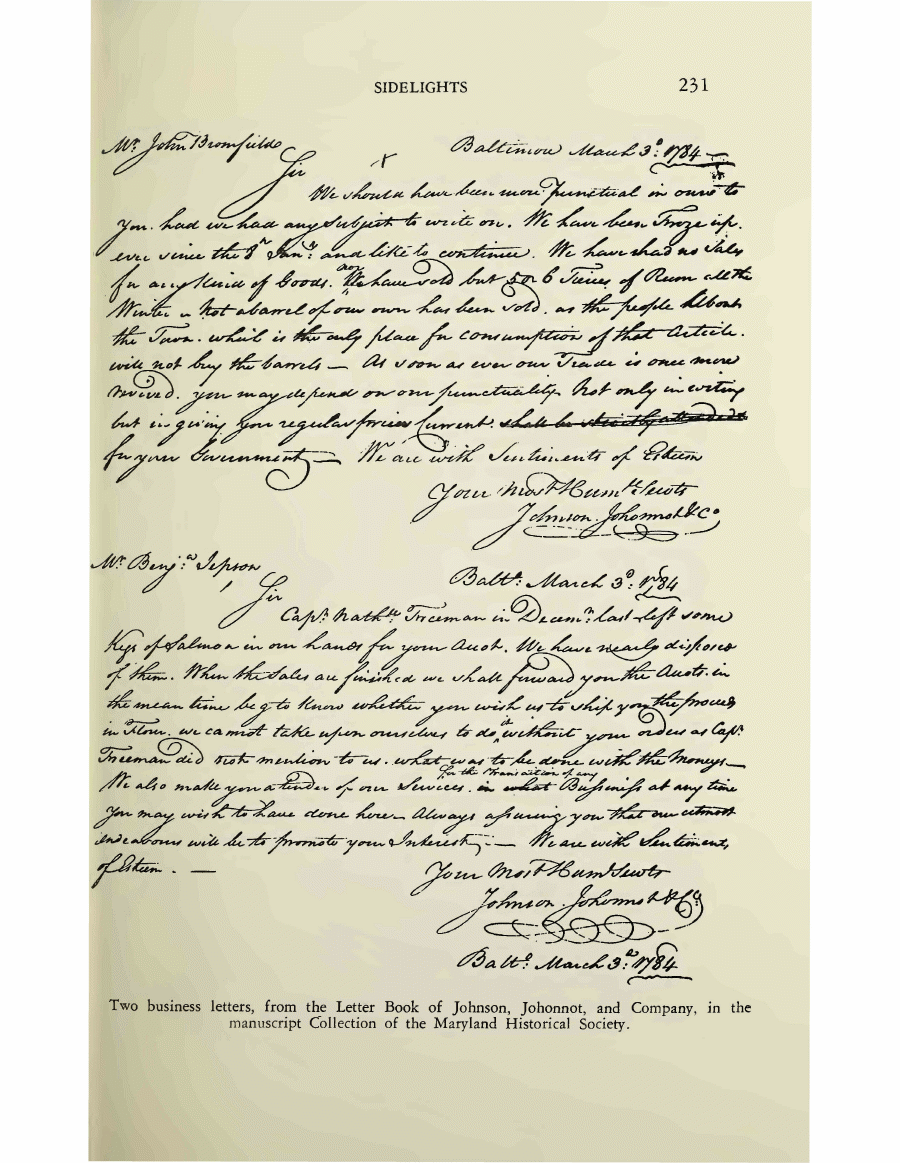 SIDELIGHTS 231
Mr. John Bromfield Baltimore March 3d: 1784
Sir
We should have been more punctual in ours to
you. had we had any Subject to write on. We have been Froze up.
ever since the 8th Jany: and like to continue. We have had no Sales
for any Kind of Goods. We have sold but 5 or 6 Tierces of Rum all the
Winter Not a barrel of our own has been sold. as the people about
the Town. which is the only place for consumption of that Article.
will not buy the barrels — As soon as ever our Trade is once more
revived. you may depend on our punctuality. Not only in writing
but in giving you regular prices Current. shall be strictly attended to
for your Government — We are with Sentiments of Esteem
Your Most Humble Servts
Johnson. Johonnot & Co
Mr. Benja Jepson Balto: March 3d: 1784
Sir
Capt. Nathl. Freeman in Decemr: last left some
Kegs of Salmon in our hands for your Acct. We have nearly disposed
of them. When the Sales are finished we shall forward you the Accts. in
the mean time beg to Know whether you wish us to ship you the proceeds
in Flour. we cannot take upon ourselves to do it without your orders as Capt.
Freeman did not mention to us. what was to be done with the Moneys —
for the Transaction of any
We also make you a tender of our Services. in what Bussiness at any time
You may wish to have done here — Always assuring you that our utmost
endeavours will be to promote your Interest; — We are with Sentiments
of Esteem. —
Your Most Huml Servts
Johnson. Johonnot & Co
Balto: March 3d: 1784
Two business letters, from the Letter Book of Johnson, Johonnot, and Company, in the
manuscript Collection of the Maryland Historical Society.